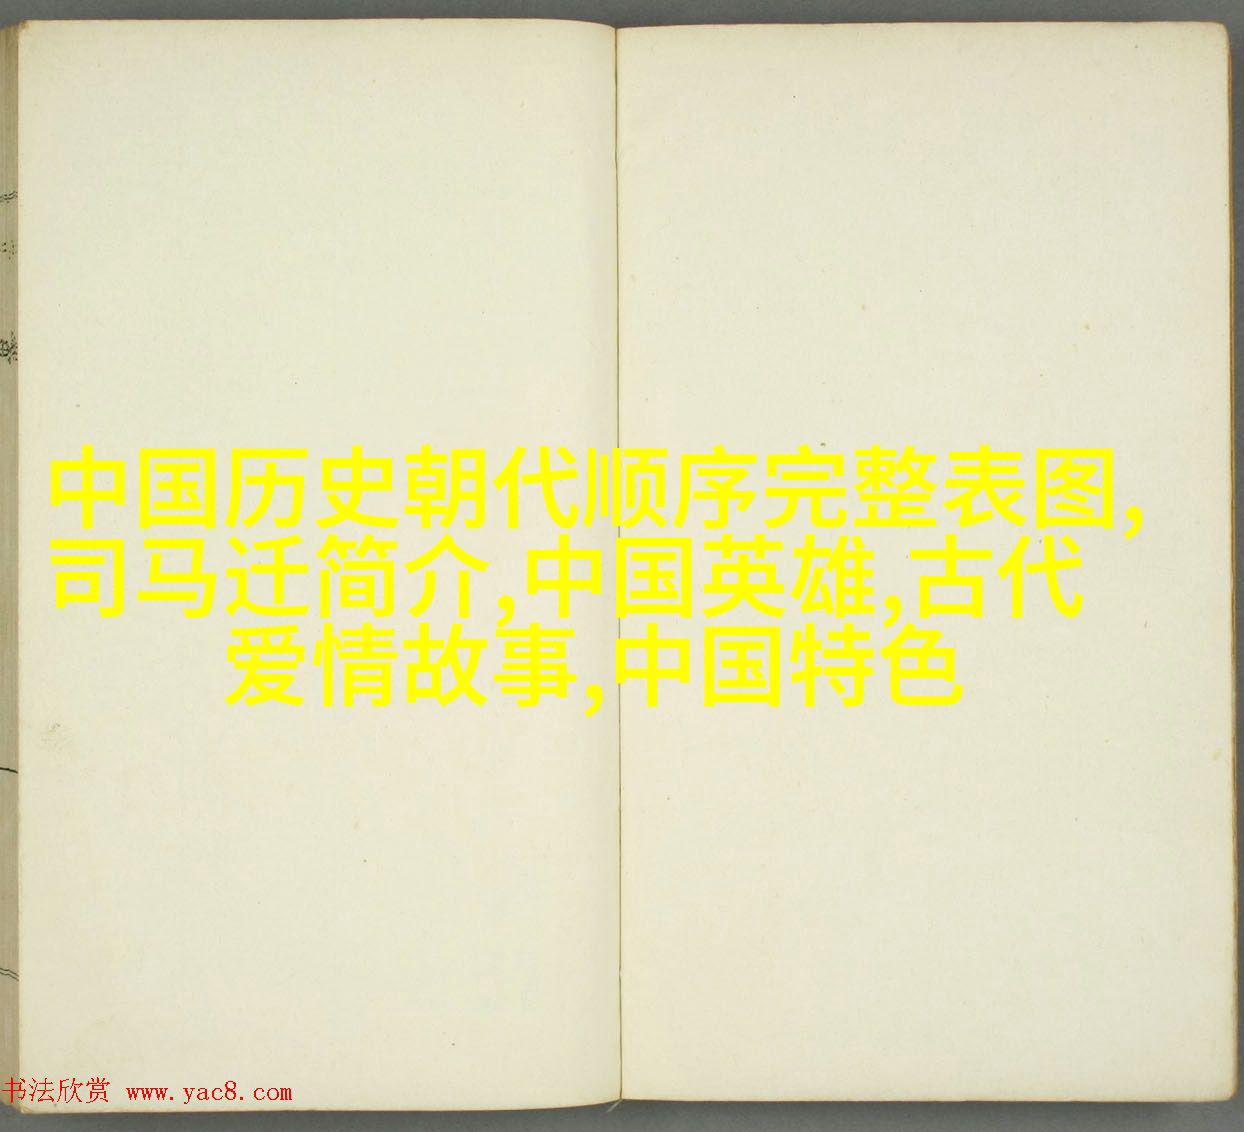 中国历史朝代顺序完整表图,
司马迁简介,中国英雄,古代
爱情故事,中国特色
书法欣赏 www.yac8.com